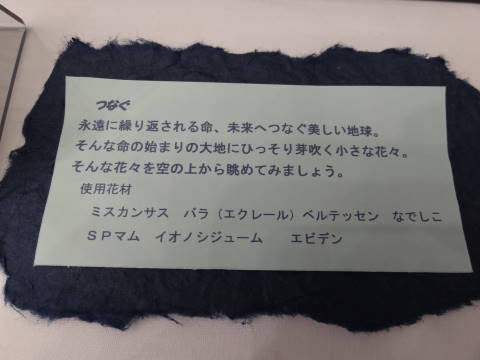 つなぐ
永遠に繰り返される命、未来へつなぐ美しい地球。
そんな命の始まりの大地にひっそり芽吹く小さな花々。
そんな花々を空の上から眺めてみましょう。
使用花材
ミスカンサス　バラ（エクレール）ベルテッセン　なでしこ
ＳＰマム　イオノシジューム　　エピデン